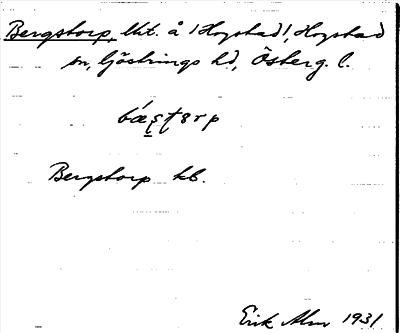 Bergstorp, lht. å /Hogstad/, Hogstad
sn, Göstrings hd, Österg. l.
Bergstorp kb.
Erik Alm 1931